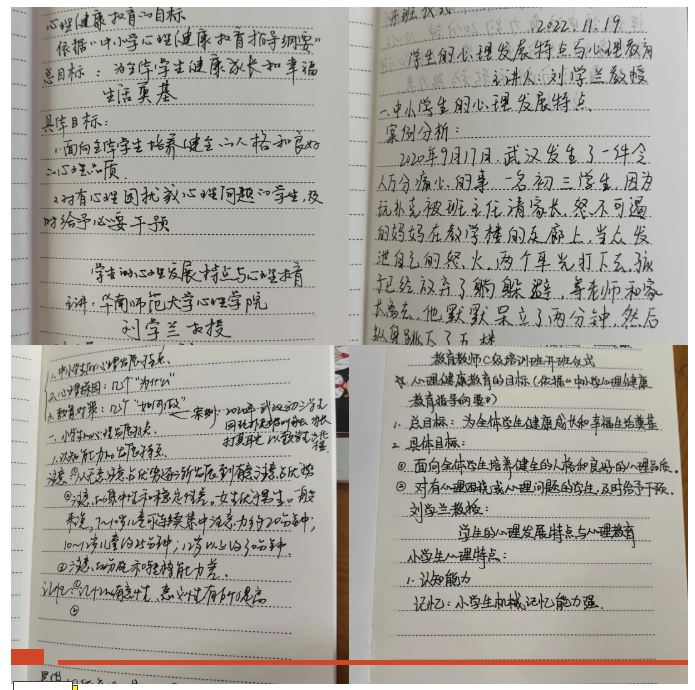 心理健康教育的目标
依据"中小学心理健康教育指导纲要"
总目标：为全体学生健康成长和幸福
生活奠基
具体目标：
1.面向全体学生培养健全的人格和良好
的心理品质.
2.对有心理困扰或心理问题的学生,及
时给予必要干预
学生的心理发展特点与心理教育
主讲：华南师范大学心理学院
刘学兰教授
开班仪式
2022.11.19
学生的心理发展特点与心理教育
主讲人：刘学兰教授
一.中小学生的心理发展特点.
案例分析：
2020年9月17日,武汉发生了一件令
人万分痛心的事.一名初三学生,因为
玩扑克被班主任请家长,怒不可遏
的妈妈在教学楼的走廊上,当众发
泄自己的怒火,两个耳光打下去,孩
子已经放弃了躬躲避,等老师和家
长离去,他默默呆立了两分钟,然后
纵身跳下了五楼
1.中小学生的心理发展特点.
2.心理成因：几个"为什么"
3.教育对策：几个"如何做"
案例：2020年武汉初三学生
因玩扑克被叫家长,
打其耳光
一.小学生的心理发展特点
1.认知能力的发展特点.
注意:①从无意注意占优势逐渐发展到有意注意占优势
②注意的集中性和稳定性差。女生优于男生。一般
来说,7~10岁儿童可连续集中注意力约20分钟,
10~12岁儿童约25分钟,12岁以上约30分钟.
③注意的分配和转移能力差.
记忆:①
②
教育教师C级培训班开班仪式
☆心理健康教育的目标(依据"中小学心理健康
教育指导纲要")
1.总目标：为全体学生健康成长和幸福生活奠基
2.具体目标：
①.面向全体学生培养健全的人格和良好的心理品质。
②.对有心理困扰或心理问题的学生,及时给予干预.
刘学兰教授：
学生的心理发展特点与心理教育
小学生心理特点：
1.认知能力
记忆：小学生机械记忆能力强.